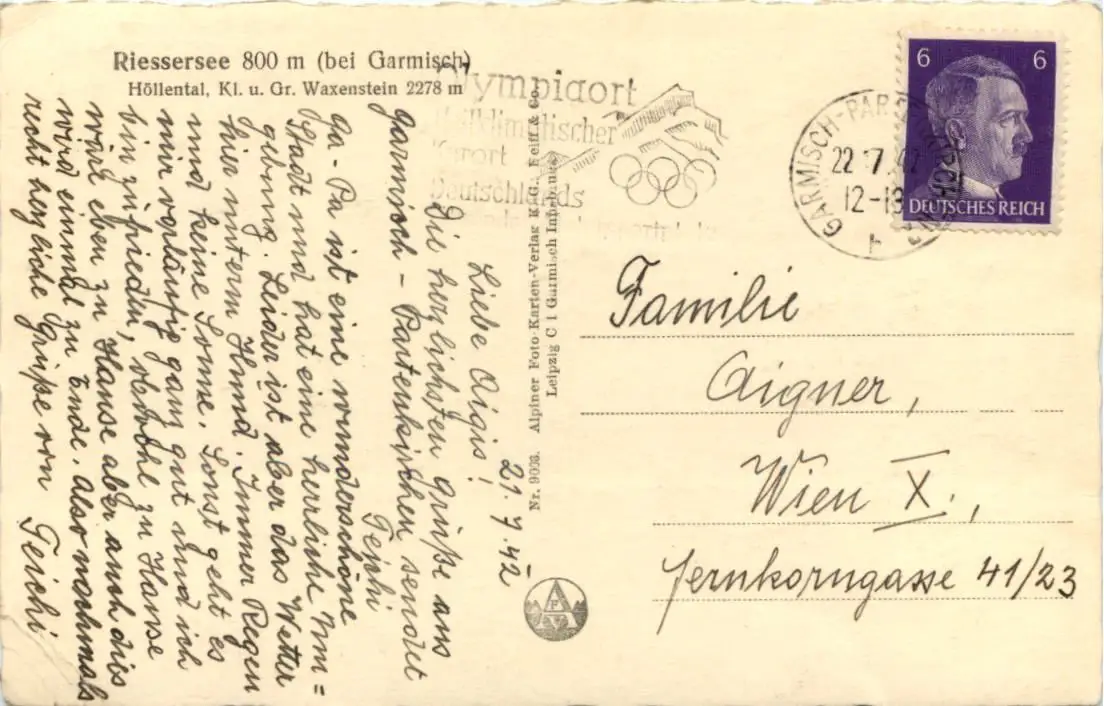 Riessersee 800 m (bei Garmisch)
Höllental, Kl. u. Gr. Waxenstein 2278 m
Olympiaort
heilklimatischer
Kurort
Deutschlands
GARMISCH-PARTENKIRCHEN
22.7.42
12-13
h
6 6
DEUTSCHES REICH
21.7.42
Liebe Aigis!
Die herzlichsten Grüße aus
Garmisch-Partenkirchen sendet
Ga-Pa ist eine wunderschöne
Stadt und hat eine herrliche Um=
gebung. Leider ist aber das Wetter
hier unterm Hund. Immer Regen
und keine Sonne. Sonst geht es
mir vorläufig ganz gut und ich
bin zufrieden, obwohl zu Hause
wär eben zu Hause aber auch dies
wird einmal zu Ende. Also nochmals
recht herzliche Grüße von
Nr. 9003. Alpiner Foto-Karten-Verlag K.G., Reiff & Co.
Leipzig C 1 Garmisch Innsbruck
AFA
Familie
Aigner,
Wien X.,
Jernkorngasse 41/23